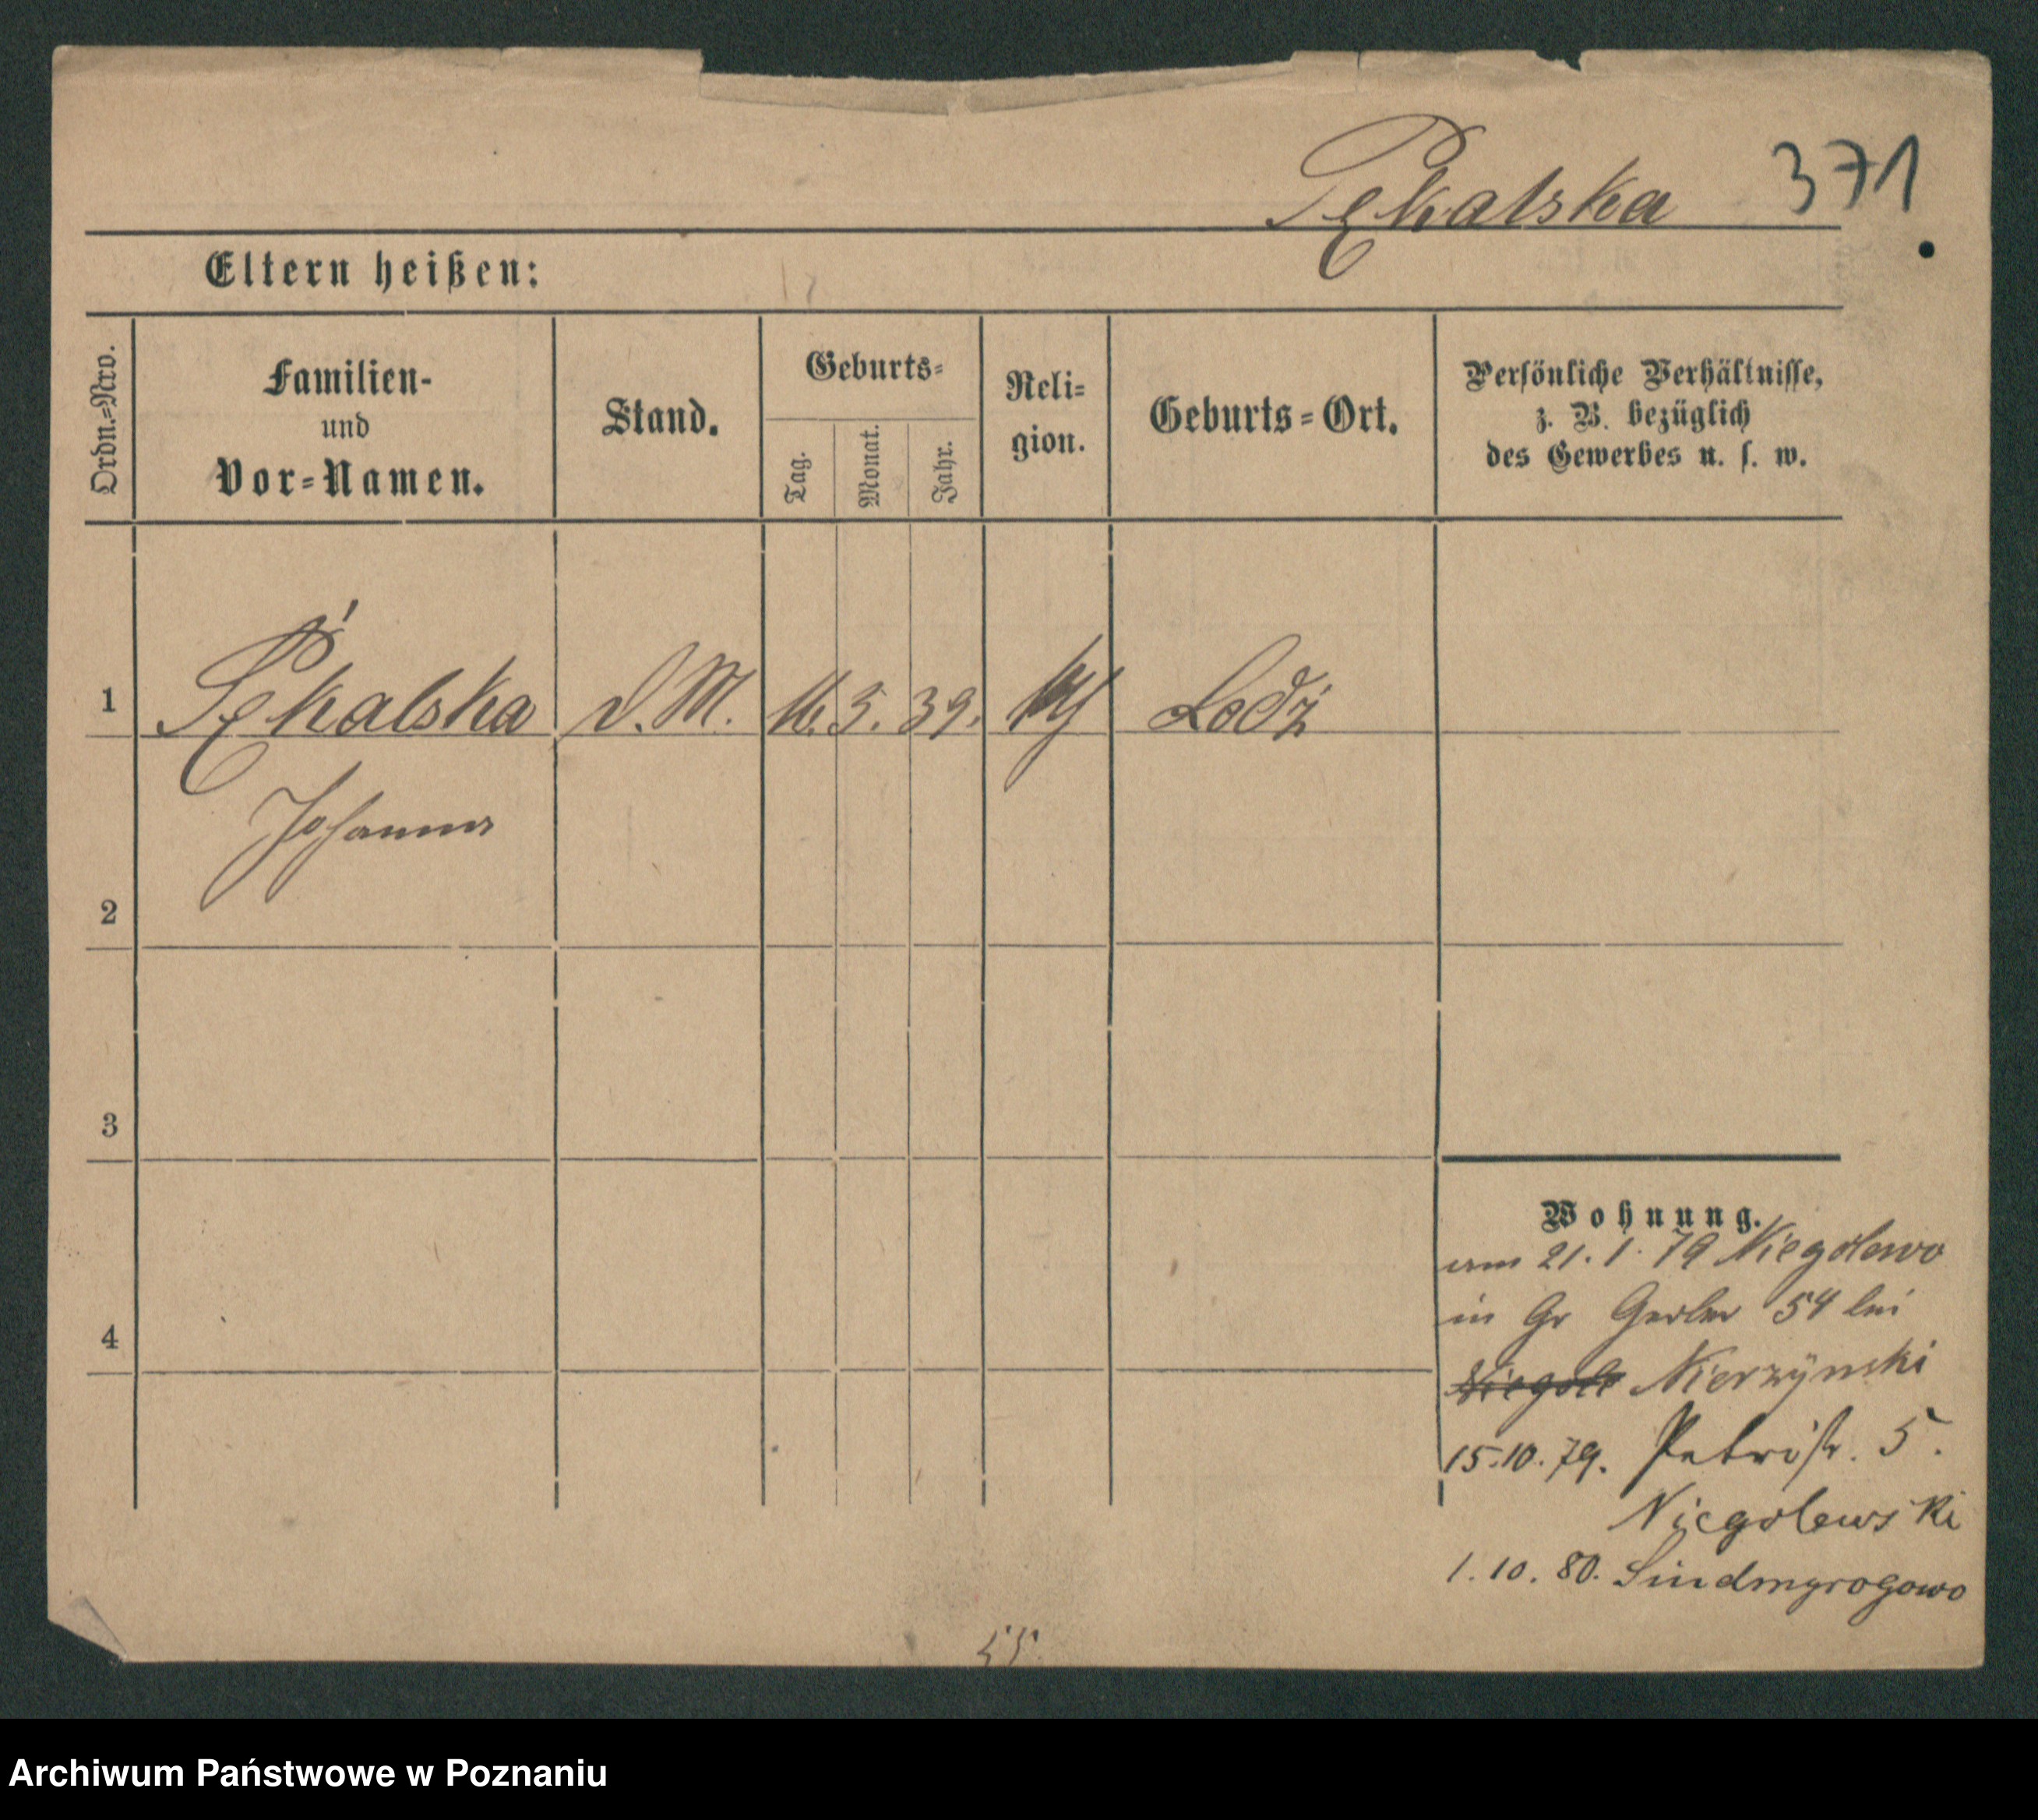 Pękalska 371
Eltern heißen:
Ordn.=Nro.
Familien-
und
Vor=Namen.
Stand.
Geburts=
Tag.
Monat.
Jahr.
Reli=
gion.
Geburts=Ort.
Persönliche Verhältnisse,
z. B. bezüglich
des Gewerbes u. s. w.
1 Pękalska D. M. 16. 5. 39. Lodź
Johanna
2
3
4
Wohnung.
am 21. 1. 79 Niegolewo
in Gr Gerber 54 bei
Niegole Nierzynski
15.10.79. Petristr. 5.
Niegolewski
1. 10. 80.
55.
Archiwum Państwowe w Poznaniu